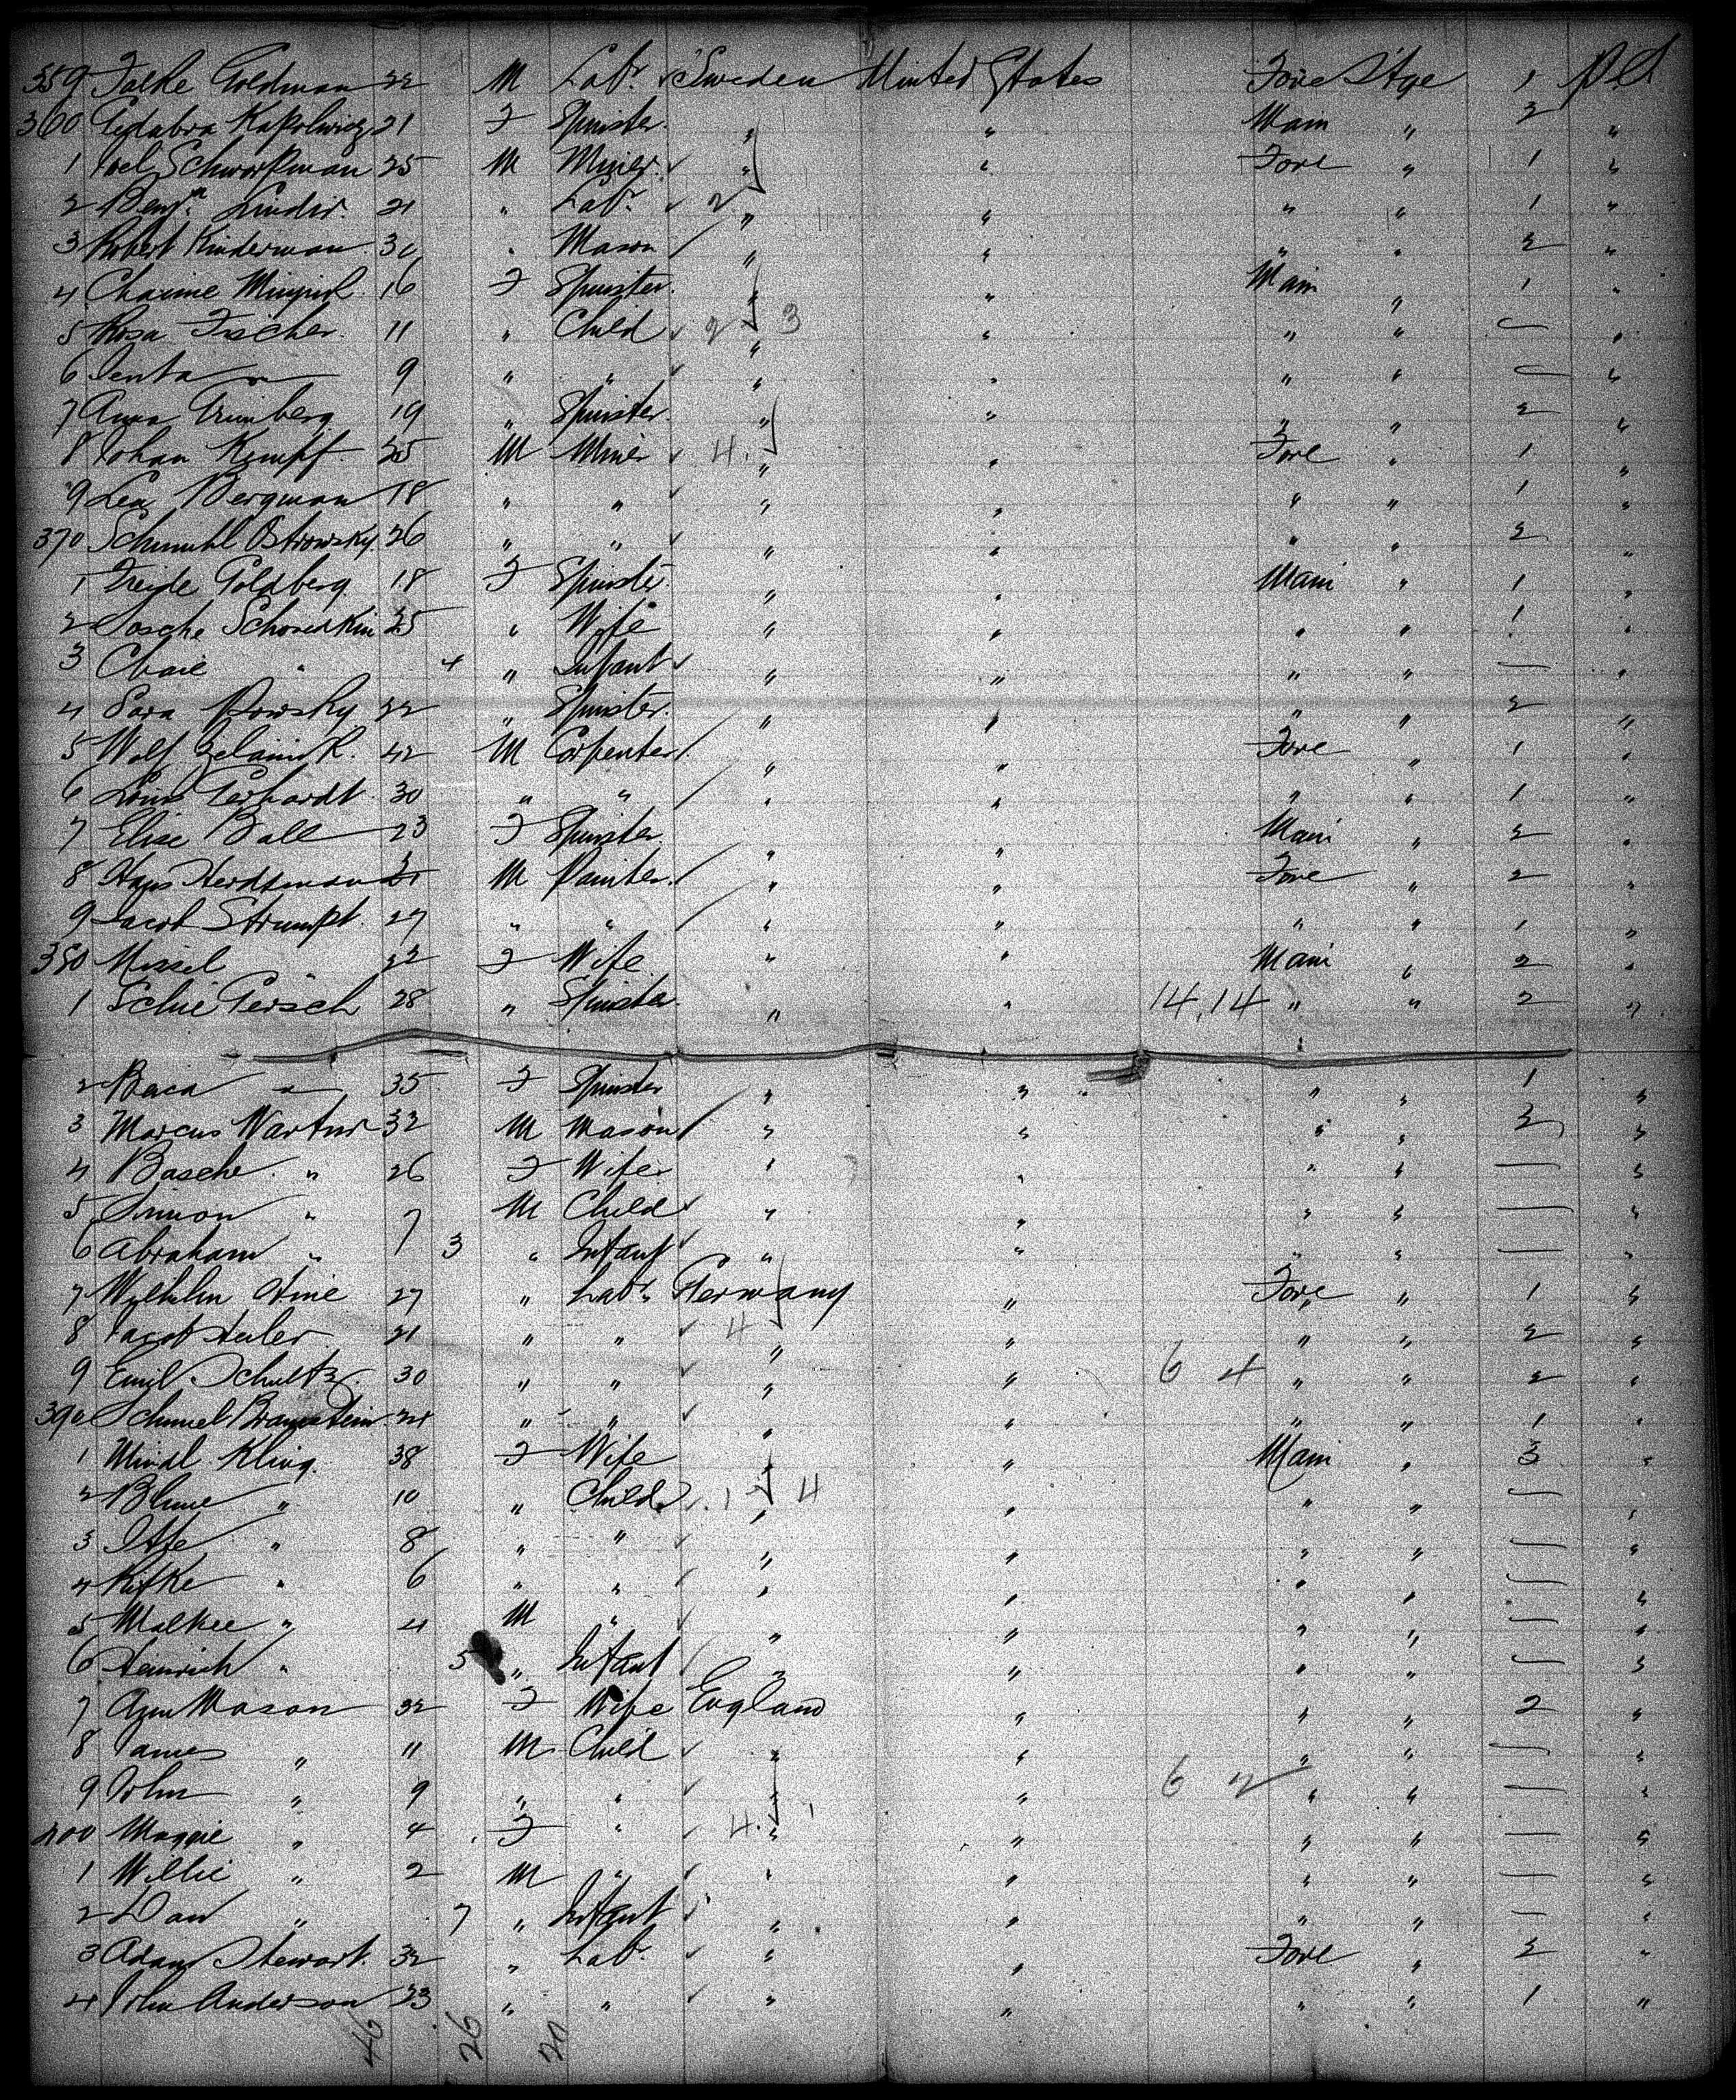 359 Falke Goldman 22 M Labr Sweden United States Fore Stge 1 P.S
360 Kapolwicz 21 F Spinster " " Main " 2 "
1 Joel Schwarkman 25 M Miner " " Fore " 1 "
2 Benjn Linder 21 " Labr 2 " " " " 1 "
3 Robert Kinderman 30 " Mason " " " " 2 "
4 16 F Spinster " " Main " 1 "
5 Rosa Fischer 11 " Child 2 3 " " " " — "
6 Jenta " 9 " " " " " " — "
7 Anna Grunberg 19 " Spinster " " " " 2 "
8 Johan Kempf 25 M Miner 4 " " Fore " 1 "
9 Leas Bergman 18 " " " " " " 1 "
370 Ostrowsky 26 " " " " " " 2 "
1 Freide Goldberg 18 F Spinster " " Main " 1 "
2 Sosche 25 " Wife " " " " 1 "
3 Chaie " 4 " Infant " " " " — "
4 Sara 22 " Spinster " " " " 2 "
5 Wolf 42 M Carpenter " " Fore " 1 "
6 Louis Gerhardt 30 " " " " " " 1 "
7 Elise Ball 23 F Spinster " " Main " 2 "
8 Hans M Painter " " Fore " 2 "
9 Jacob Strumpt 27 " " " " " " 1 "
380 Missel " 22 F Wife " " Main " 2 "
1 Gersch 28 " Spinster " " 14,14 " " 2 "
2 " 35 F Spinster " " " " 1 "
3 Marcus 32 M Mason " " " " 2 "
4 Basche " 26 F Wife " " " " — "
5 Simon " 7 M Child " " " " — "
6 Abraham " 3 " Infant " " " " — "
7 Wilhelm Hine 27 " Labr. Germany " Fore " 1 "
8 Jacob 21 " " 4 " " " " 2 "
9 Emil Schultz 30 " " " " 6 4 " " 2 "
390 Schmuel Braunstein 24 " " " " " " 1 "
1 Mindl Kling 38 F Wife " " Main " 3 "
2 Blume " 10 " Child 1 4 " " " " — "
3 Itte " 8 " " " " " " — "
4 Rifke " 6 " " " " " " — "
5 Malkee " 4 M " " " " " — "
6 Heinrich " 5 " Infant " " " " — "
7 Mason 32 F Wife England " " " 2 "
8 James " 11 M Child " " " " — "
9 John " 9 " " " " 6 2 " " — "
400 Maggie " 4 F " 4 " " " " — "
1 Willie " 2 M " " " " " — "
2 Dan " 7 " Infant " " " " — "
3 Adam Stewart 32 " Labr " " Fore " 2 "
4 John Anderson 23 " " " " " " 1 "
46 26 20